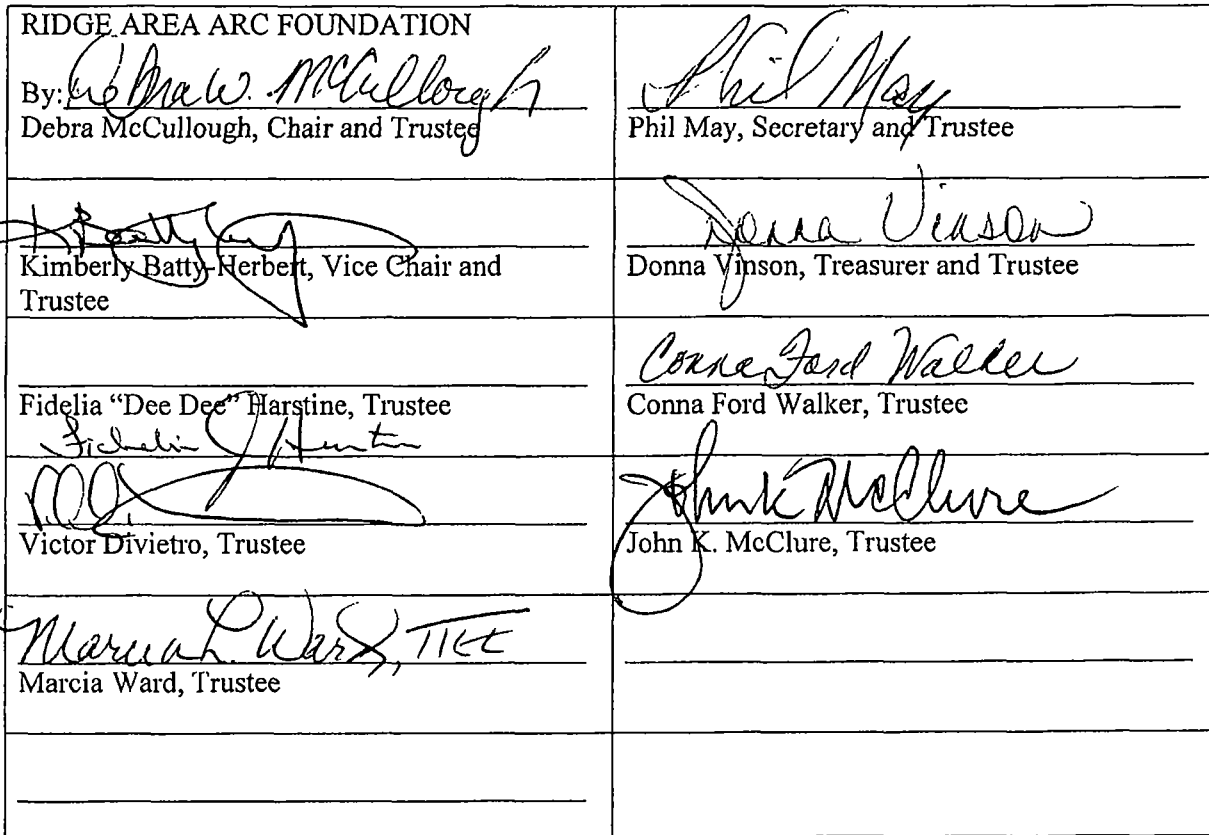 RIDGE AREA ARC FOUNDATION
By: Debra W. McCullough
Debra McCullough, Chair and Trustee
Phil May
Phil May, Secretary and Trustee
Kimberly Batty-Herbert, Vice Chair and
Trustee
Donna Vinson
Donna Vinson, Treasurer and Trustee
Fidelia “Dee Dee” Harstine, Trustee
Conna Ford Walker
Conna Ford Walker, Trustee
Victor Divietro, Trustee
John K McClure
John K. McClure, Trustee
Marcia L. Ward, TTEE
Marcia Ward, Trustee